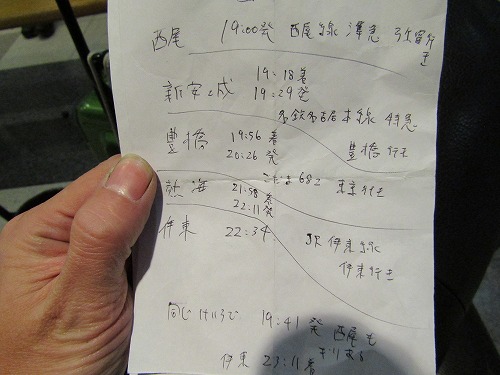 西尾 19:00発 西尾線 準急 弥富行き
新安城 19:18着
19:29発
名鉄名古屋本線 特急
豊橋 19:56着 豊橋行き
20:26発
こだま682 東京行き
熱海 21:58着
22:11発
伊東 22:34 JR伊東線
伊東行き
同じけいろで 19:41発 西尾も
ぎりある
伊東 23:11着